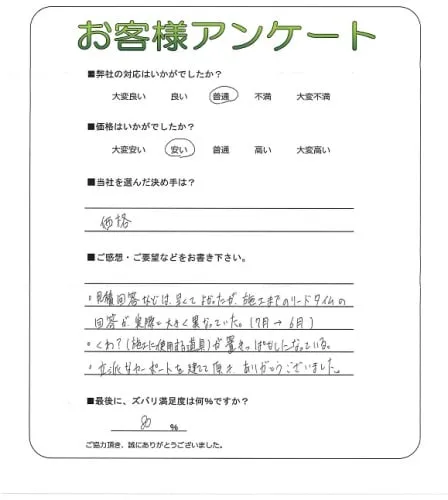 お客様アンケート
■弊社の対応はいかがでしたか？
大変良い 良い 普通 不満 大変不満
■価格はいかがでしたか？
大変安い 安い 普通 高い 大変高い
■当社を選んだ決め手は？
価格
■ご感想・ご要望などをお書き下さい。
・見積回答などは、早くてよかったが、施工までのリードタイムの
回答が実際と大きく異なっていた。(7月→6月)
・くわ？(施工に使用する道具)が置きっぱなしになっている。
・立派なカーポートを建てて頂き ありがとうございました。
■最後に、ズバリ満足度は何%ですか？
80 %
ご協力頂き、誠にありがとうございました。